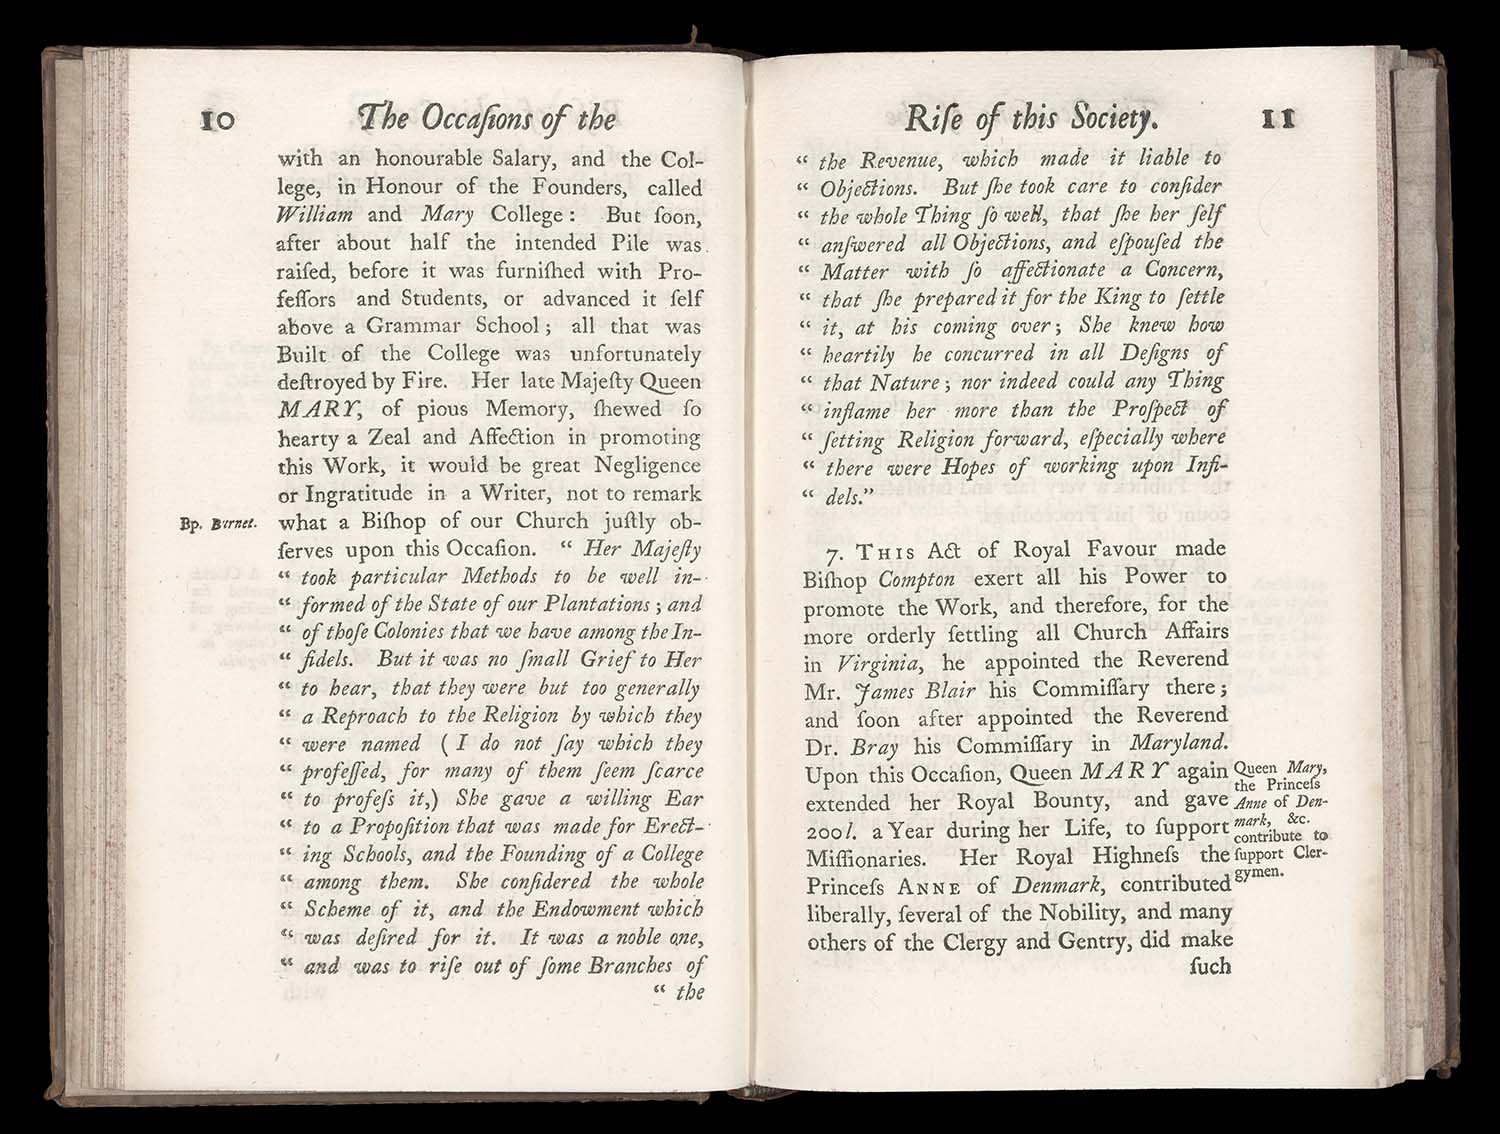 10 The Occaſions of the
with an honourable Salary, and the Col-
lege, in Honour of the Founders, called
William and Mary College: But ſoon,
after about half the intended Pile was
raiſed, before it was furniſhed with Pro-
feſſors and Students, or advanced it ſelf
above a Grammar School; all that was
Built of the College was unfortunately
deſtroyed by Fire. Her late Majeſty Queen
MARY, of pious Memory, ſhewed ſo
hearty a Zeal and Affection in promoting
this Work, it would be great Negligence
or Ingratitude in a Writer, not to remark
Bp. Burnet.
what a Biſhop of our Church juſtly ob-
ſerves upon this Occaſion. “ Her Majeſty
“ took particular Methods to be well in-
“ formed of the State of our Plantations; and
“ of thoſe Colonies that we have among the In-
“ fidels. But it was no ſmall Grief to Her
“ to hear, that they were but too generally
“ a Reproach to the Religion by which they
“ were named (I do not ſay which they
“ profeſſed, for many of them ſeem ſcarce
“ to profeſs it,) She gave a willing Ear
“ to a Propoſition that was made for Erect-
“ ing Schools, and the Founding of a College
“ among them. She conſidered the whole
“ Scheme of it, and the Endowment which
“ was deſired for it. It was a noble one,
“ and was to riſe out of ſome Branches of
“ the
Riſe of this Society. 11
“ the Revenue, which made it liable to
“ Objections. But ſhe took care to conſider
“ the whole Thing ſo well, that ſhe her ſelf
“ anſwered all Objections, and eſpouſed the
“ Matter with ſo affectionate a Concern,
“ that ſhe prepared it for the King to ſettle
“ it, at his coming over; She knew how
“ heartily he concurred in all Deſigns of
“ that Nature; nor indeed could any Thing
“ inflame her more than the Proſpect of
“ ſetting Religion forward, eſpecially where
“ there were Hopes of working upon Infi-
“ dels.”
7. THIS Act of Royal Favour made
Biſhop Compton exert all his Power to
promote the Work, and therefore, for the
more orderly ſettling all Church Affairs
in Virginia, he appointed the Reverend
Mr. James Blair his Commiſſary there;
and ſoon after appointed the Reverend
Dr. Bray his Commiſſary in Maryland.
Upon this Occaſion, Queen MARY again
extended her Royal Bounty, and gave
200l. a Year during her Life, to ſupport
Miſſionaries. Her Royal Highneſs the
Princeſs ANNE of Denmark, contributed
liberally, ſeveral of the Nobility, and many
others of the Clergy and Gentry, did make
ſuch
Queen Mary,
the Princeſs
Anne of Den-
mark, &c.
contribute to
ſupport Cler-
gymen.